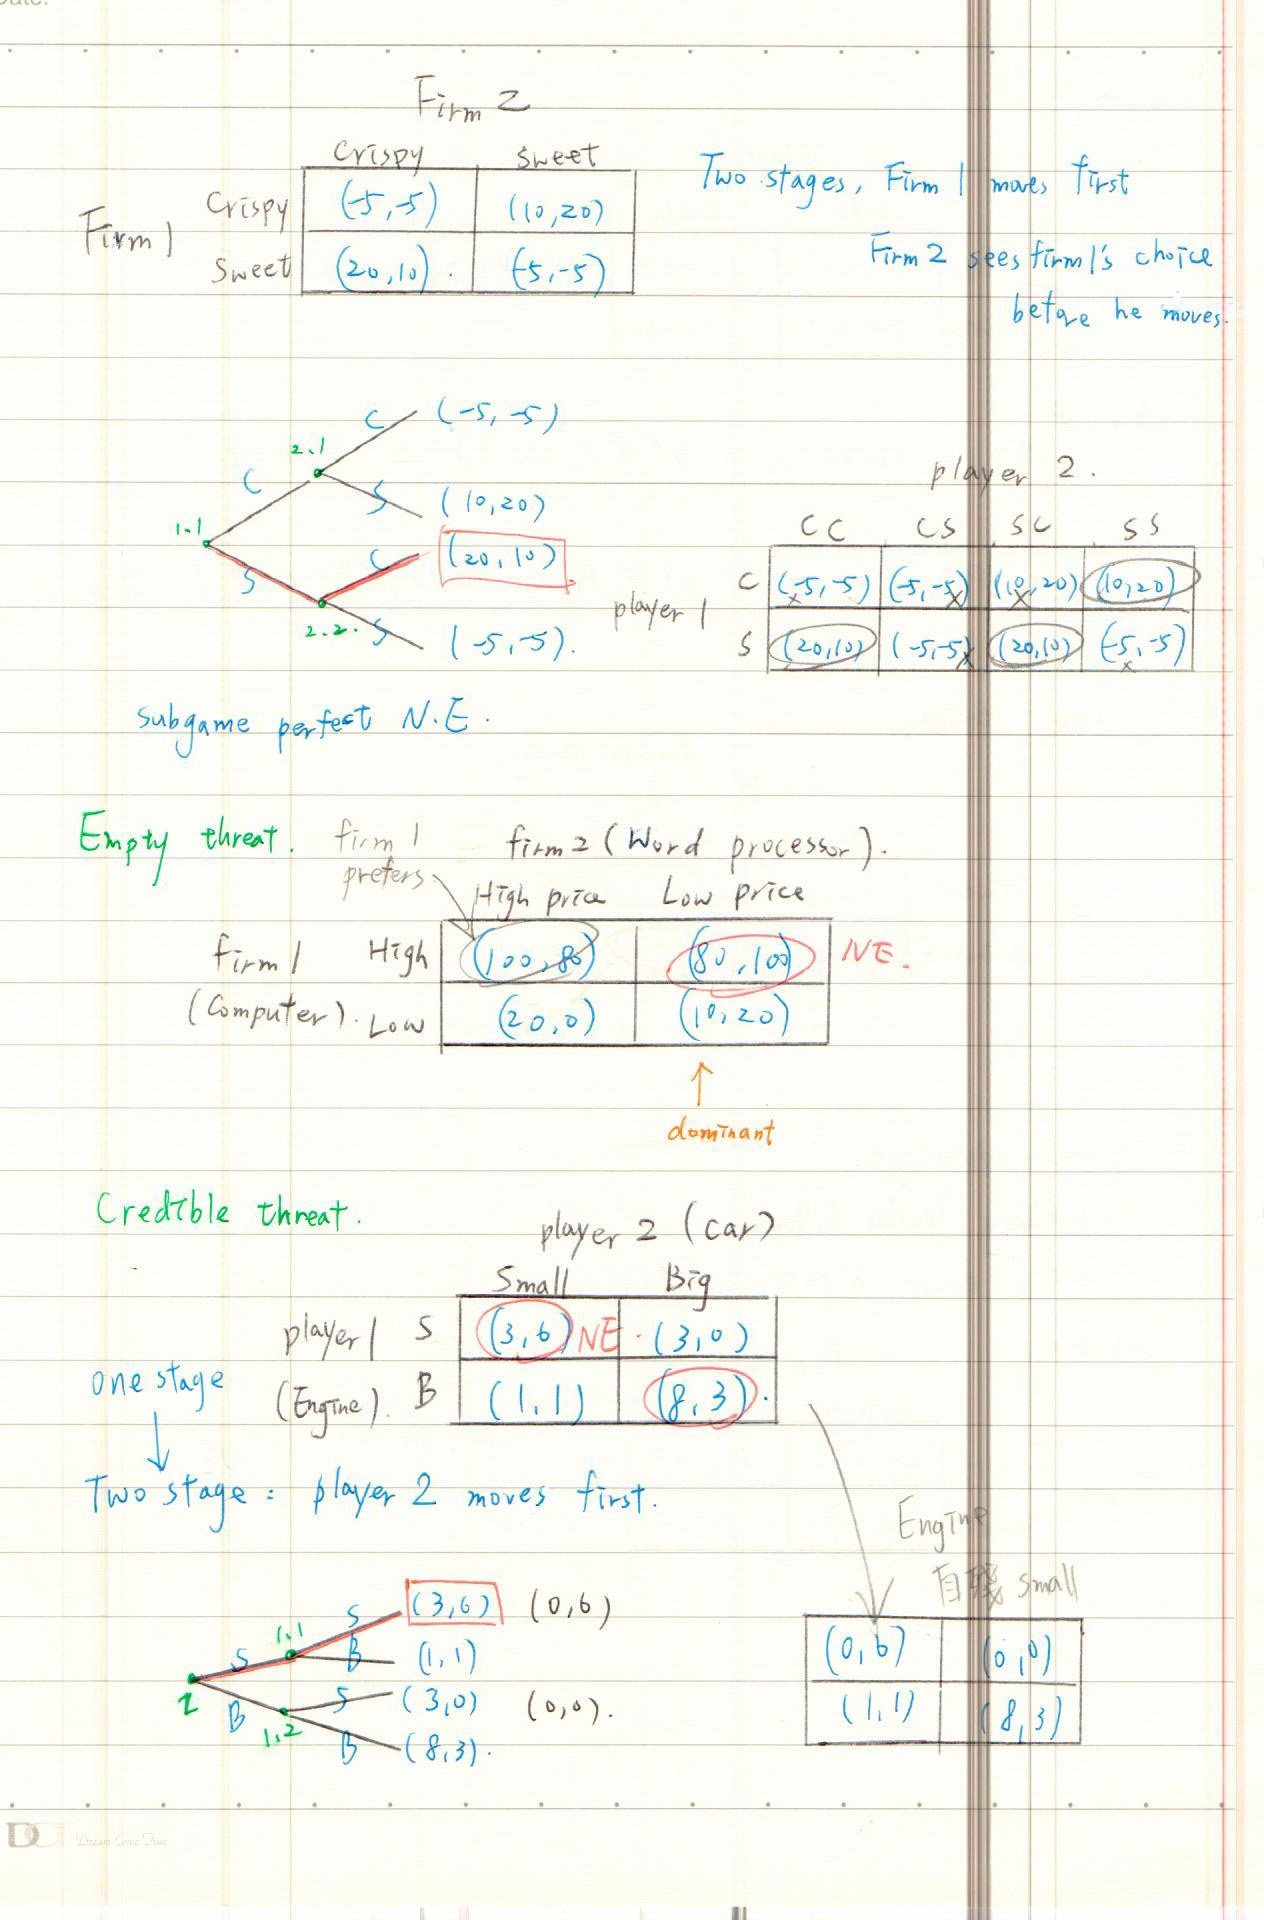 Date:
Firm 2
Crispy sweet
Two stages, Firm 1 moves first
Firm 1 Crispy (-5,-5) (10,20)
Sweet (20,10). (-5,-5)
Firm 2 sees firm1's choice
before he moves.
C (-5,-5)
2.1
C S (10,20)
1.1
S C (20,10)
2.2. S (-5,-5).
player 2.
CC CS SC SS
player 1 C (-5,-5) (-5,-5) (10,20) (10,20)
S (20,10) (-5,-5) (20,10) (-5,-5)
subgame perfect N.E.
Empty threat. firm 1 prefers. firm 2 (Word processor).
High price Low price
firm 1 High (100,80) (80,100) NE.
(Computer). Low (20,0) (10,20)
dominant
Credible threat.
player 2 (car)
Small Big
player 1 S (3,6) NE. (3,0)
(Engine). B (1,1) (8,3).
one stage
Two stage: player 2 moves first.
Engine
自殘 small
S (3,6) (0,6)
1.1
S B (1,1)
2
B S (3,0) (0,0).
1.2
B (8,3).
(0,6) (0,0)
(1,1) (8,3)
Dream Come True